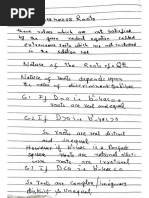 Extraneous Roots
These values which are not satisfied
by the given radical equation called
extraneous roots which are not included
in the solution set
Nature of the Roots of a QE
Nature of roots depends upon
the value of discriminant b²-4ac
C1 If D=0 i.e b²-4ac=0
So roots are real and
equal
C2 If D>0 i.e b²-4ac>0
So roots are real distinct
and unequal
However if b²-4ac is a Perfect
square roots are rational otherwise
roots are irrational
If D<0 i.e b²-4ac<0
So Roots are Complex/imaginary
distinct & unequal